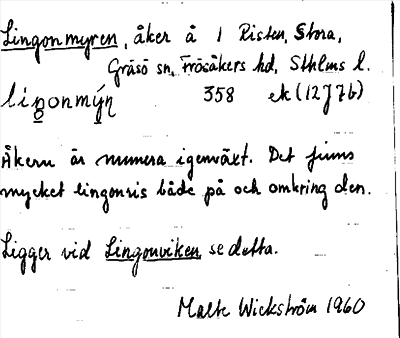 Lingonmyren, åker å 1 Risten, Stora,
Gräsö sn, Frösåkers hd, Sthlms l.
lingonmýṇ 358 ek (12J7b)
Åkern är numera igenväxt. Det finns
mycket lingonris både på och omkring den.
Ligger vid Lingonviken, se detta.
Malte Wickström 1960